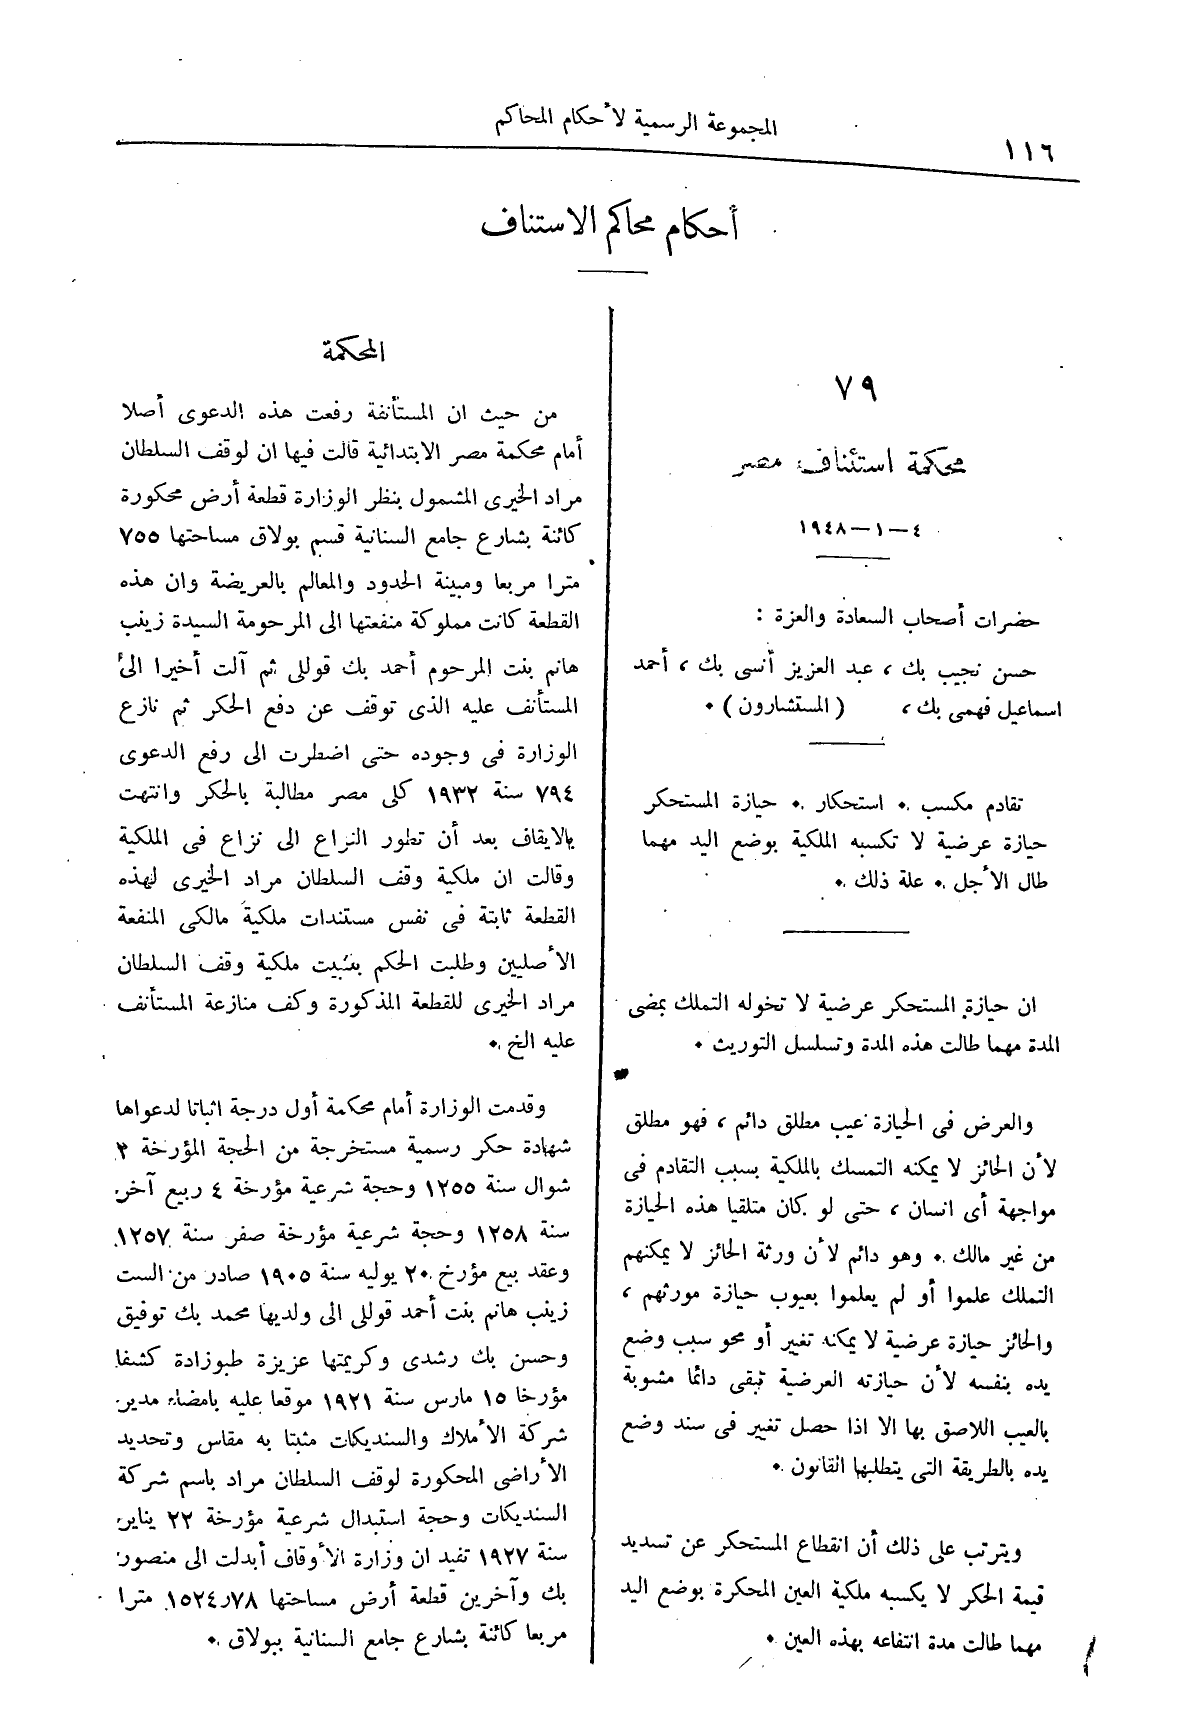 المجموعة الرسمية لأحكام المحاكم
١١٦
أحكام محاكم الاستئناف
٧٩
محكمة استئناف مصر
٤-١-١٩٤٨
حضرات أصحاب السعادة والعزة :
حسن نجيب بك ، عبد العزيز أنسى بك ، أحمد
اسماعيل فهمى بك ، (المستشارون) ٠
تقادم مكسب ٠ استحكار ٠ حيازة المستحكر
حيازة عرضية لا تكسبه الملكية بوضع اليد مهما
طال الأجل ٠ علة ذلك ٠
ان حيازة المستحكر عرضية لا تخوله التملك بمضى
المدة مهما طالت هذه المدة وتسلسل التوريث ٠
والعرض فى الحيازة عيب مطلق دائم ، فهو مطلق
لأن الحائز لا يمكنه التمسك بالملكية بسبب التقادم فى
مواجهة أى انسان ، حتى لو كان متلقيا هذه الحيازة
من غير مالك ٠ وهو دائم لأن ورثة الحائز لا يمكنهم
التملك علموا أو لم يعلموا بعيوب حيازة مورثهم ،
والحائز حيازة عرضية لا يمكنه تغير أو محو سبب وضع
يده بنفسه لأن حيازته العرضية تبقى دائما مشوبة
بالعيب اللاصق بها الا اذا حصل تغيير فى سند وضع
يده بالطريقة التى يتطلبها القانون ٠
ويترتب على ذلك أن انقطاع المستحكر عن تسديد
قيمة الحكر لا يكسبه ملكية العين المحكرة بوضع اليد
مهما طالت مدة انتفاعه بهذه العين ٠
المحكمة
من حيث ان المستأنفة رفعت هذه الدعوى أصلا
أمام محكمة مصر الابتدائية قالت فيها ان لوقف السلطان
مراد الخيرى المشمول بنظر الوزارة قطعة أرض محكورة
كائنة بشارع جامع السنانية قسم بولاق مساحتها ٧٥٥
مترا مربعا ومبينة الحدود والمعالم بالعريضة وان هذه
القطعة كانت مملوكة منفعتها الى المرحومة السيدة زينب
هانم بنت المرحوم أحمد بك قوللى ثم آلت أخيرا الى
المستأنف عليه الذى توقف عن دفع الحكر ثم نازع
الوزارة فى وجوده حتى اضطرت الى رفع الدعوى
٧٩٤ سنة ١٩٣٢ كلى مصر مطالبة بالحكر وانتهت
بالايقاف بعد أن تطور النزاع الى نزاع فى الملكية
وقالت ان ملكية وقف السلطان مراد الخيرى لهذه
القطعة ثابتة فى نفس مستندات ملكية مالكى المنفعة
الأصليين وطلبت الحكم بتثبيت ملكية وقف السلطان
مراد الخيرى للقطعة المذكورة وكف منازعة المستأنف
عليه الخ ٠
وقدمت الوزارة أمام محكمة أول درجة اثباتا لدعواها
شهادة حكر رسمية مستخرجة من الحجة المؤرخة ٢
شوال سنة ١٢٥٥ وحجة شرعية مؤرخة ٤ ربيع آخر
سنة ١٢٥٨ وحجة شرعية مؤرخة صفر سنة ١٢٥٧
وعقد بيع مؤرخ ٢٠ يوليه سنة ١٩٠٥ صادر من الست
زينب هانم بنت أحمد قوللى الى ولديها محمد بك توفيق
وحسن بك رشدى وكريمتها عزيزة طبوزادة كشفا
مؤرخا ١٥ مارس سنة ١٩٢١ موقعا عليه بامضاء مدير
شركة الأملاك والسنديكات مثبتا به مقاس وتحديد
الأراضى المحكورة لوقف السلطان مراد باسم شركة
السنديكات وحجة استبدال شرعية مؤرخة ٢٢ يناير
سنة ١٩٢٧ تفيد ان وزارة الأوقاف أبدلت الى منصور
بك وآخرين قطعة أرض مساحتها ١٥٢٤ر٧٨ مترا
مربعا كائنة بشارع جامع السنانية ببولاق ٠